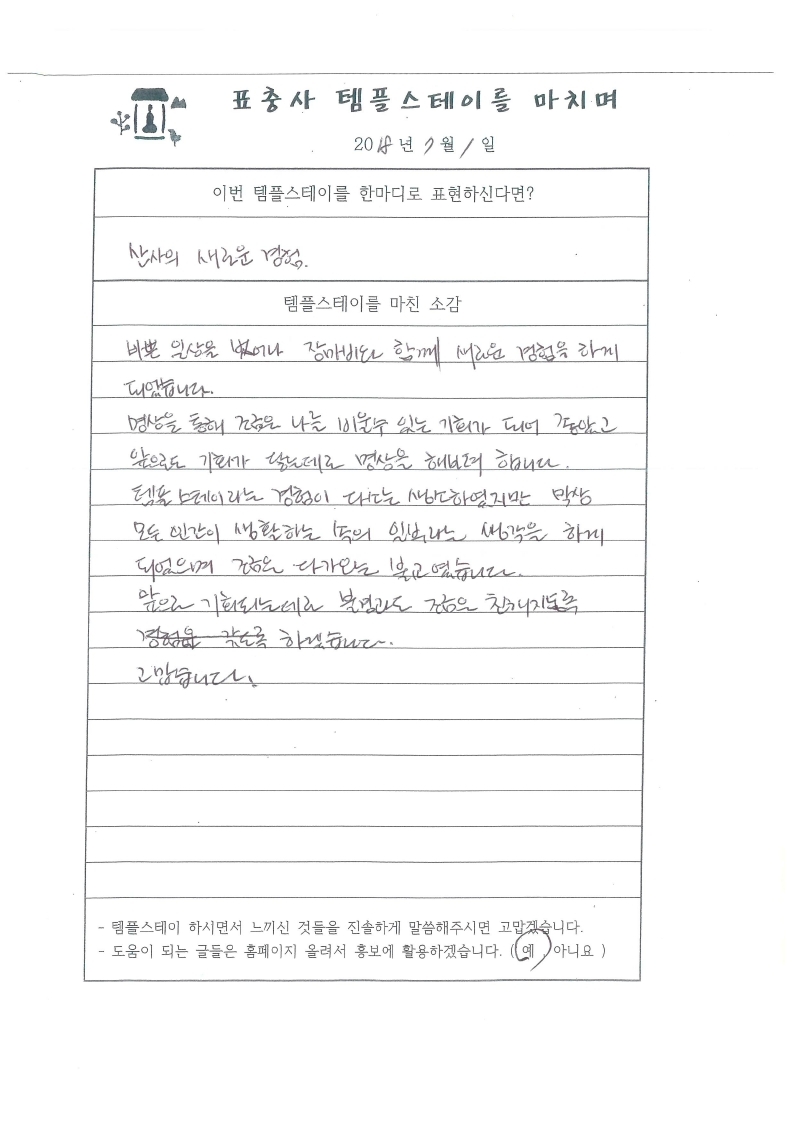 표충사 템플스테이를 마치며
2018년 7월 1일
이번 템플스테이를 한마디로 표현하신다면?
산사의 새로운 경험.
템플스테이를 마친 소감
바쁜 일상을 벗어나 장마비와 함께 새로운 경험을 하게
되었습니다.
명상을 통해 조금은 나를 비울수 있는 기회가 되어 좋았고
앞으로도 기회가 닿는데로 명상을 해보려 합니다.
템플스테이라는 경험이 다소는 하였지만 막상
모든 인간이 생활하는 속의 일부라는 생각을 하게
되었으며 조금은 다가오는 불교였습니다.
앞으로 기회되는데로 불경과도 조금은 친해지도록
경험을 갖도록 하겠습니다.
고맙습니다.
- 템플스테이 하시면서 느끼신 것들을 진솔하게 말씀해주시면 고맙겠습니다.
- 도움이 되는 글들은 홈페이지 올려서 홍보에 활용하겠습니다. ( 예 , 아니요 )